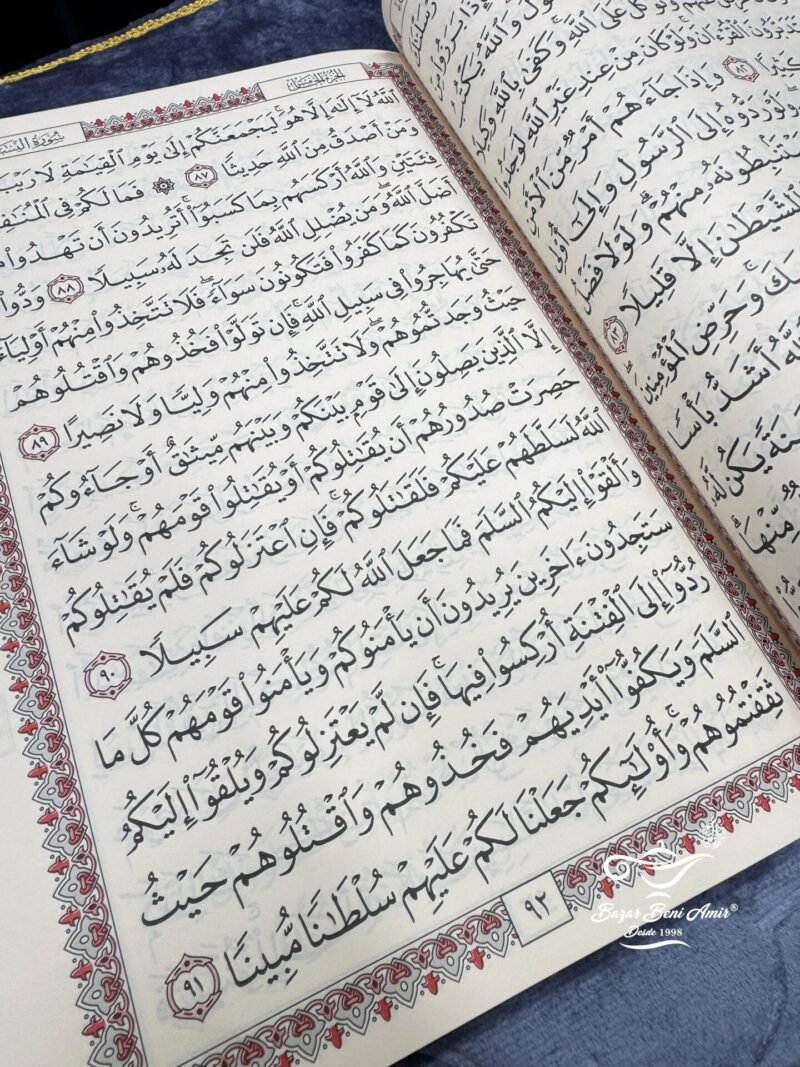 إِذَا بَرَزُوا۟ مِنْ
تَقُولُ ۖ وَٱللَّهُ يَكْتُبُ
وَتَوَكَّلْ عَلَى ٱللَّهِ ۚ وَكَفَىٰ بِٱللَّهِ وَكِيلًا
يَتَدَبَّرُونَ ٱلْقُرْءَانَ ۚ وَلَوْ كَانَ مِنْ عِندِ غَيْرِ ٱللَّهِ لَوَجَدُوا۟
كَثِيرًا ٨٢ وَإِذَا جَآءَهُمْ أَمْرٌ مِّنَ ٱلْأَمْنِ
وَلَوْ رَدُّوهُ إِلَى ٱلرَّسُولِ وَإِلَىٰٓ أُو۟لِى
يَسْتَنۢبِطُونَهُۥ مِنْهُمْ ۗ وَلَوْلَا فَضْلُ
ٱلشَّيْطَـٰنَ إِلَّا قَلِيلًا ٨٣
وَحَرِّضِ ٱلْمُؤْمِنِينَ ۖ
أَشَدُّ بَأْسًا
يَكُن لَّهُۥ
مِّنْهَا ۗ
الجزء الخامس
سورة
ٱللَّهُ لَآ إِلَـٰهَ إِلَّا هُوَ ۚ لَيَجْمَعَنَّكُمْ إِلَىٰ يَوْمِ ٱلْقِيَـٰمَةِ لَا رَيْبَ
وَمَنْ أَصْدَقُ مِنَ ٱللَّهِ حَدِيثًا ٨٧ ۞ فَمَا لَكُمْ فِى
فِئَتَيْنِ وَٱللَّهُ أَرْكَسَهُم بِمَا كَسَبُوٓا۟ ۚ أَتُرِيدُونَ أَن تَهْدُوا۟
أَضَلَّ ٱللَّهُ ۖ وَمَن يُضْلِلِ ٱللَّهُ فَلَن تَجِدَ لَهُۥ سَبِيلًا ٨٨ وَدُّوا۟
تَكْفُرُونَ كَمَا كَفَرُوا۟ فَتَكُونُونَ سَوَآءً ۖ فَلَا تَتَّخِذُوا۟ مِنْهُمْ أَوْلِيَآءَ
حَتَّىٰ يُهَاجِرُوا۟ فِى سَبِيلِ ٱللَّهِ ۚ فَإِن تَوَلَّوْا۟ فَخُذُوهُمْ وَٱقْتُلُوهُمْ
حَيْثُ وَجَدتُّمُوهُمْ ۖ وَلَا تَتَّخِذُوا۟ مِنْهُمْ وَلِيًّا وَلَا نَصِيرًا ٨٩
إِلَّا ٱلَّذِينَ يَصِلُونَ إِلَىٰ قَوْمٍۭ بَيْنَكُمْ وَبَيْنَهُم مِّيثَـٰقٌ أَوْ جَآءُوكُمْ
حَصِرَتْ صُدُورُهُمْ أَن يُقَـٰتِلُوكُمْ أَوْ يُقَـٰتِلُوا۟ قَوْمَهُمْ ۚ وَلَوْ شَآءَ
ٱللَّهُ لَسَلَّطَهُمْ عَلَيْكُمْ فَلَقَـٰتَلُوكُمْ ۚ فَإِنِ ٱعْتَزَلُوكُمْ فَلَمْ يُقَـٰتِلُوكُمْ
وَأَلْقَوْا۟ إِلَيْكُمُ ٱلسَّلَمَ فَمَا جَعَلَ ٱللَّهُ لَكُمْ عَلَيْهِمْ سَبِيلًا ٩٠
سَتَجِدُونَ ءَاخَرِينَ يُرِيدُونَ أَن يَأْمَنُوكُمْ وَيَأْمَنُوا۟ قَوْمَهُمْ كُلَّ مَا
رُدُّوٓا۟ إِلَى ٱلْفِتْنَةِ أُرْكِسُوا۟ فِيهَا ۚ فَإِن لَّمْ يَعْتَزِلُوكُمْ وَيُلْقُوٓا۟ إِلَيْكُمُ
ٱلسَّلَمَ وَيَكُفُّوٓا۟ أَيْدِيَهُمْ فَخُذُوهُمْ وَٱقْتُلُوهُمْ حَيْثُ
ثَقِفْتُمُوهُمْ ۚ وَأُو۟لَـٰٓئِكُمْ جَعَلْنَا لَكُمْ عَلَيْهِمْ سُلْطَـٰنًا مُّبِينًا ٩١
٩٢
Bazar Beni Amir®
Desde 1998